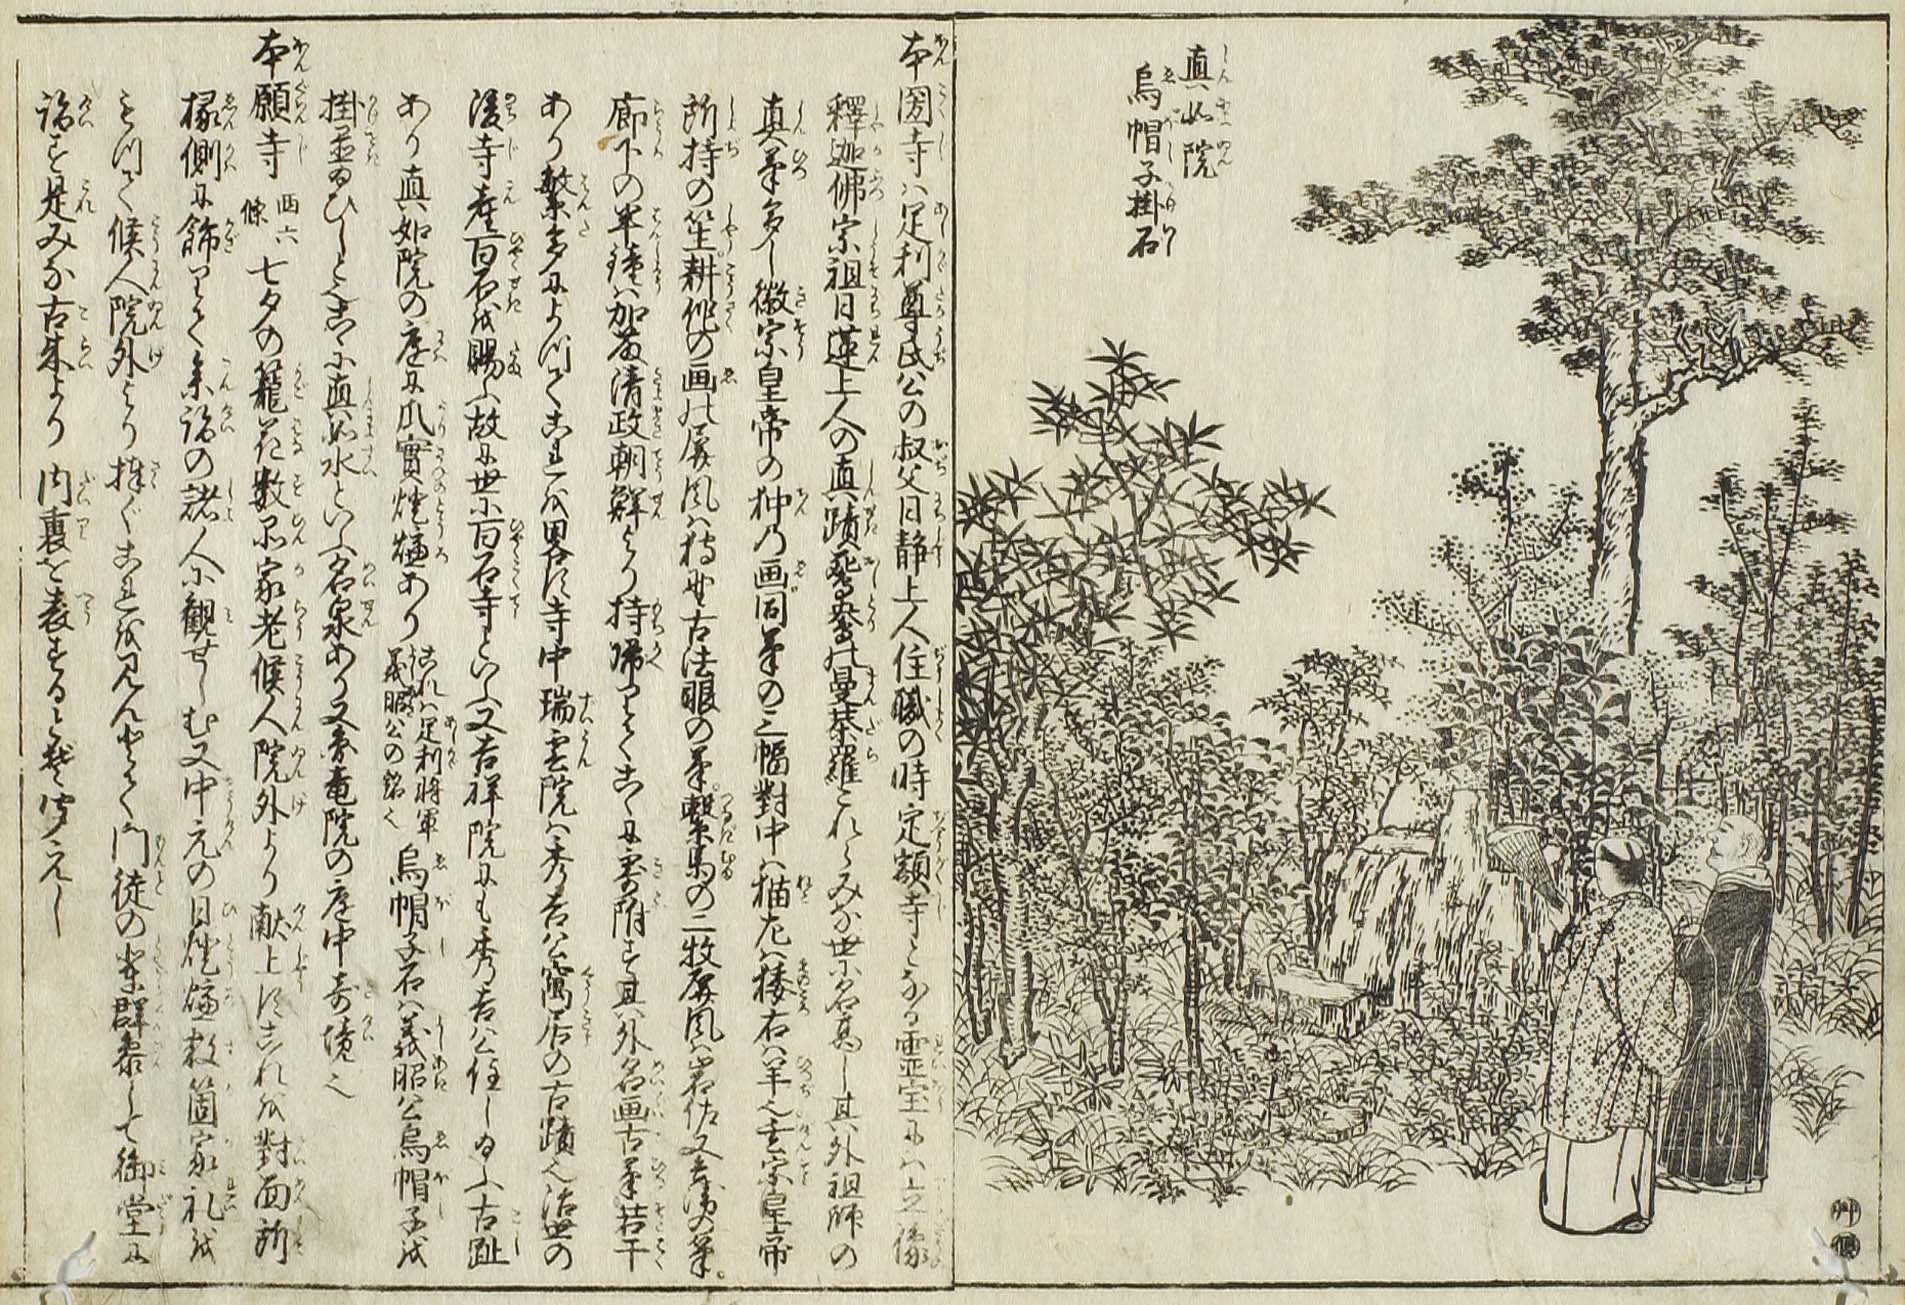 真如院
烏帽子掛石
本圀寺ハ足利尊氏公の叔父日静上人住職の時定額寺となる霊宝にハ立像
釋迦佛宗祖日蓮上人の真蹟鴛鴦の曼荼羅これらみな世に名高し其外祖師の
真筆多し徽宗皇帝の狆乃画同筆の三幅對中ハ猫左ハ㹨右ハ羊也玄宗皇帝
所持の笙耕作の画の屏風ハ狩野古法眼の筆繋馬の二枚屏風ハ岩佐又兵衛の筆
廊下の半鐘ハ加藤清政朝鮮より持帰りてこゝに寄附す其外名画古筆若干
あり繁多によつてこれを畧す寺中瑞雲院ハ秀吉公寓居の古蹟也治世の
後寺産百石を賜ふ故に世に百石寺といふ又吉祥院にも秀吉公住し給ふ古趾
あり真如院の庭に瓜實燈爐あり これハ足利将軍義昭公の銘く 烏帽子石ハ義昭公烏帽子を
掛置給ひしとぞこゝに真如水といふ名泉あり又 竜院の庭中奇境也
本願寺 西六條 七夕の籠花数品家老候人院外より献上すこれを對面所
椽側に餝りて参詣の諸人に観せしむ又中元の日燈爐数箇家礼を
もつて候人院外より捧ぐこれを見んとて門徒の輩群参して御堂に
詣す是みな古来より内裏を表するとぞ聞えし